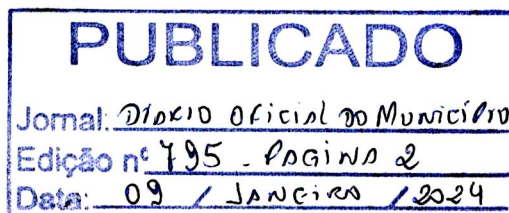 PUBLICADO
Jornal: DIÁRIO OFICIAL DO MUNICÍPIO
Edição nº 795 - PÁGINA 2
Data: 09 / JANEIRO / 2024